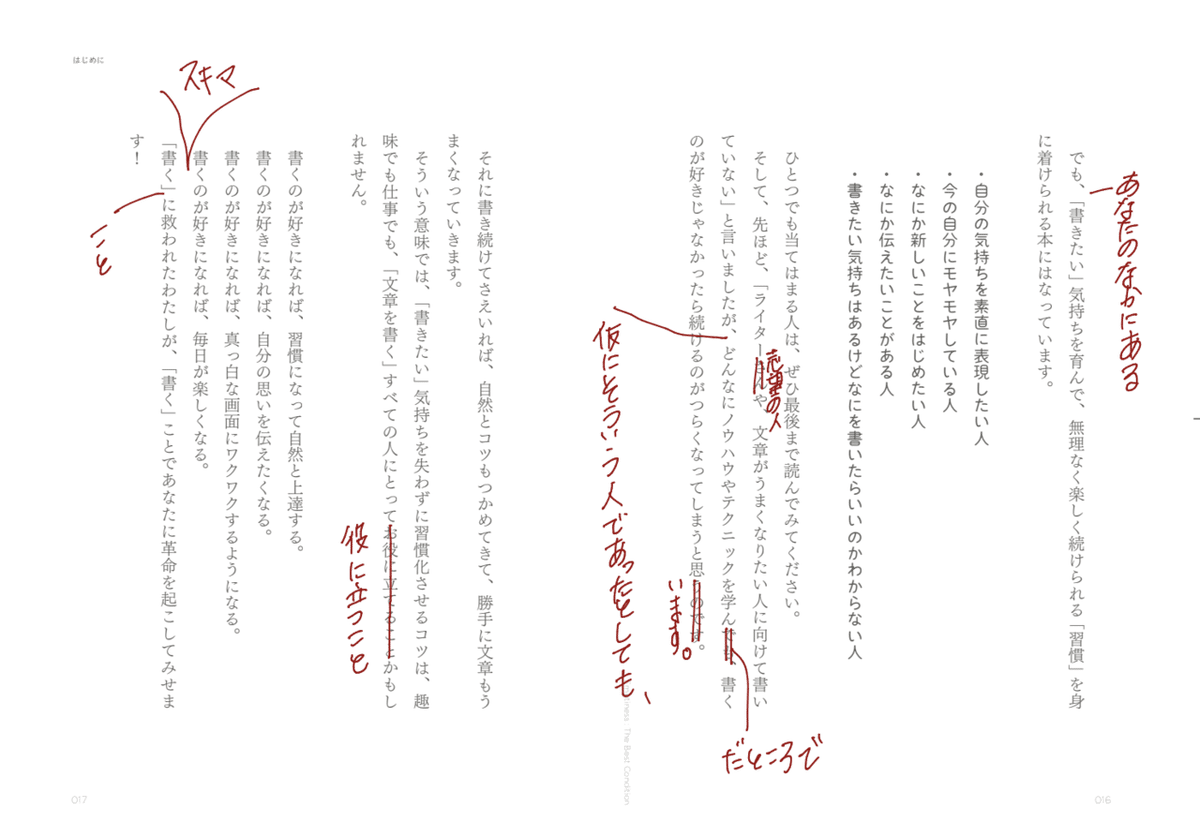 でも、「書きたい」気持ちを育んで、無理なく楽しく続けられる「習慣」を身
に着けられる本にはなっています。
あなたのなかにある
・自分の気持ちを素直に表現したい人
・今の自分にモヤモヤしている人
・なにか新しいことをはじめたい人
・なにか伝えたいことがある人
・書きたい気持ちはあるけどなにを書いたらいいのかわからない人
ひとつでも当てはまる人は、ぜひ最後まで読んでみてください。
そして、先ほど、「ライターさんや、文章がうまくなりたい人に向けて書い
志望の人
ていない」と言いましたが、どんなにノウハウやテクニックを学んでも、書く
仮にそういう人であったとしても、
だところで
のが好きじゃなかったら続けるのがつらくなってしまうと思うのです。
います。
016
iness : The Best Condition
はじめに
それに書き続けてさえいれば、自然とコツもつかめてきて、勝手に文章もう
まくなっていきます。
そういう意味では、「書きたい」気持ちを失わずに習慣化させるコツは、趣
味でも仕事でも、「文章を書く」すべての人にとってお役に立てることかもし
役に立つこと
れません。
書くのが好きになれば、習慣になって自然と上達する。
書くのが好きになれば、自分の思いを伝えたくなる。
書くのが好きになれば、真っ白な画面にワクワクするようになる。
書くのが好きになれば、毎日が楽しくなる。
スキマ
「書く」に救われたわたしが、「書く」ことであなたに革命を起こしてみせま
こと
す！
017